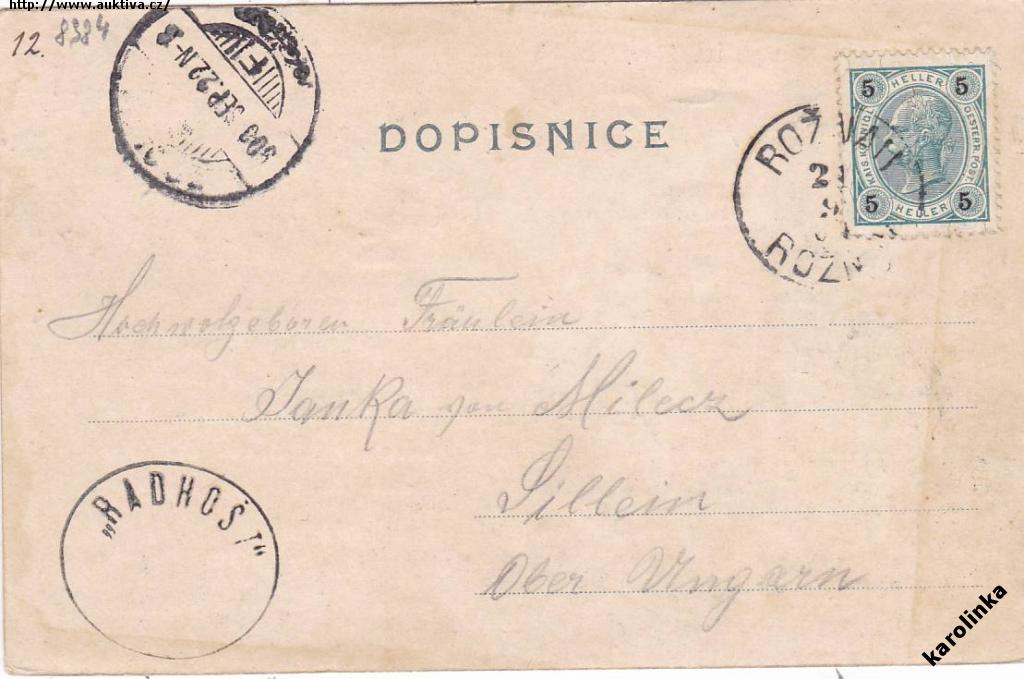 http://www.auktiva.cz/
12. 8384
903 SEP. 22 N-8
F
DOPISNICE
5 HELLER 5
KAIS. KÖNIGL. OESTERR. POST.
5 HELLER 5
ROŽ
21
9
ROZN
Hochwolgeboren Fräulein
Janka von Milecz
Sillein
Ober Ungarn
„RADHOŠT“
karolinka